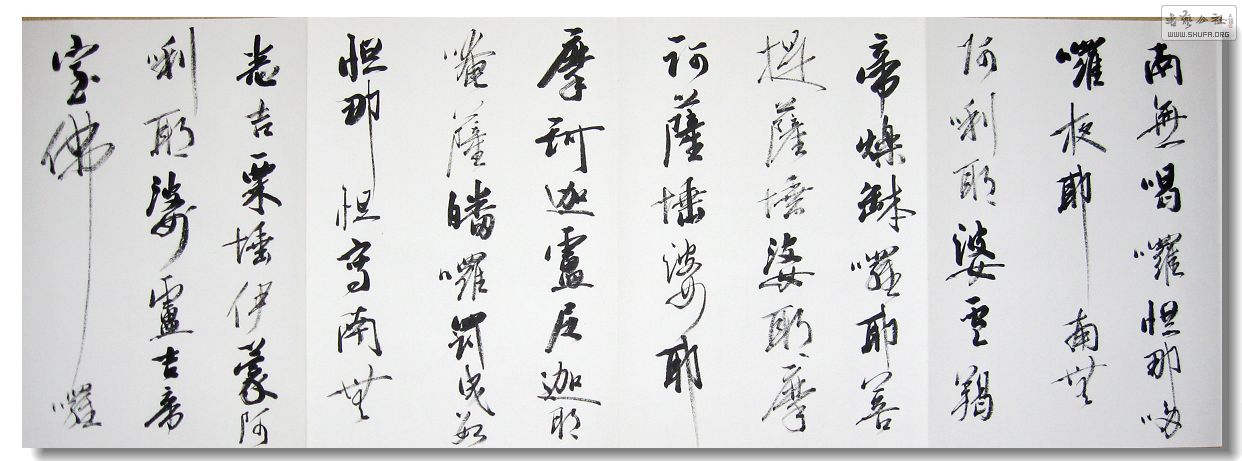 南無喝囉怛那哆
囉夜耶 南無
阿唎耶婆盧羯
帝爍缽囉耶菩
提薩埵婆耶摩
訶薩埵婆耶
摩訶迦盧尼迦耶
唵薩皤囉罰曳數
怛那怛寫南無
悉吉栗埵伊蒙阿
唎耶婆盧吉帝
室佛 囉
书藝公社
WWW.SHUFA.ORG